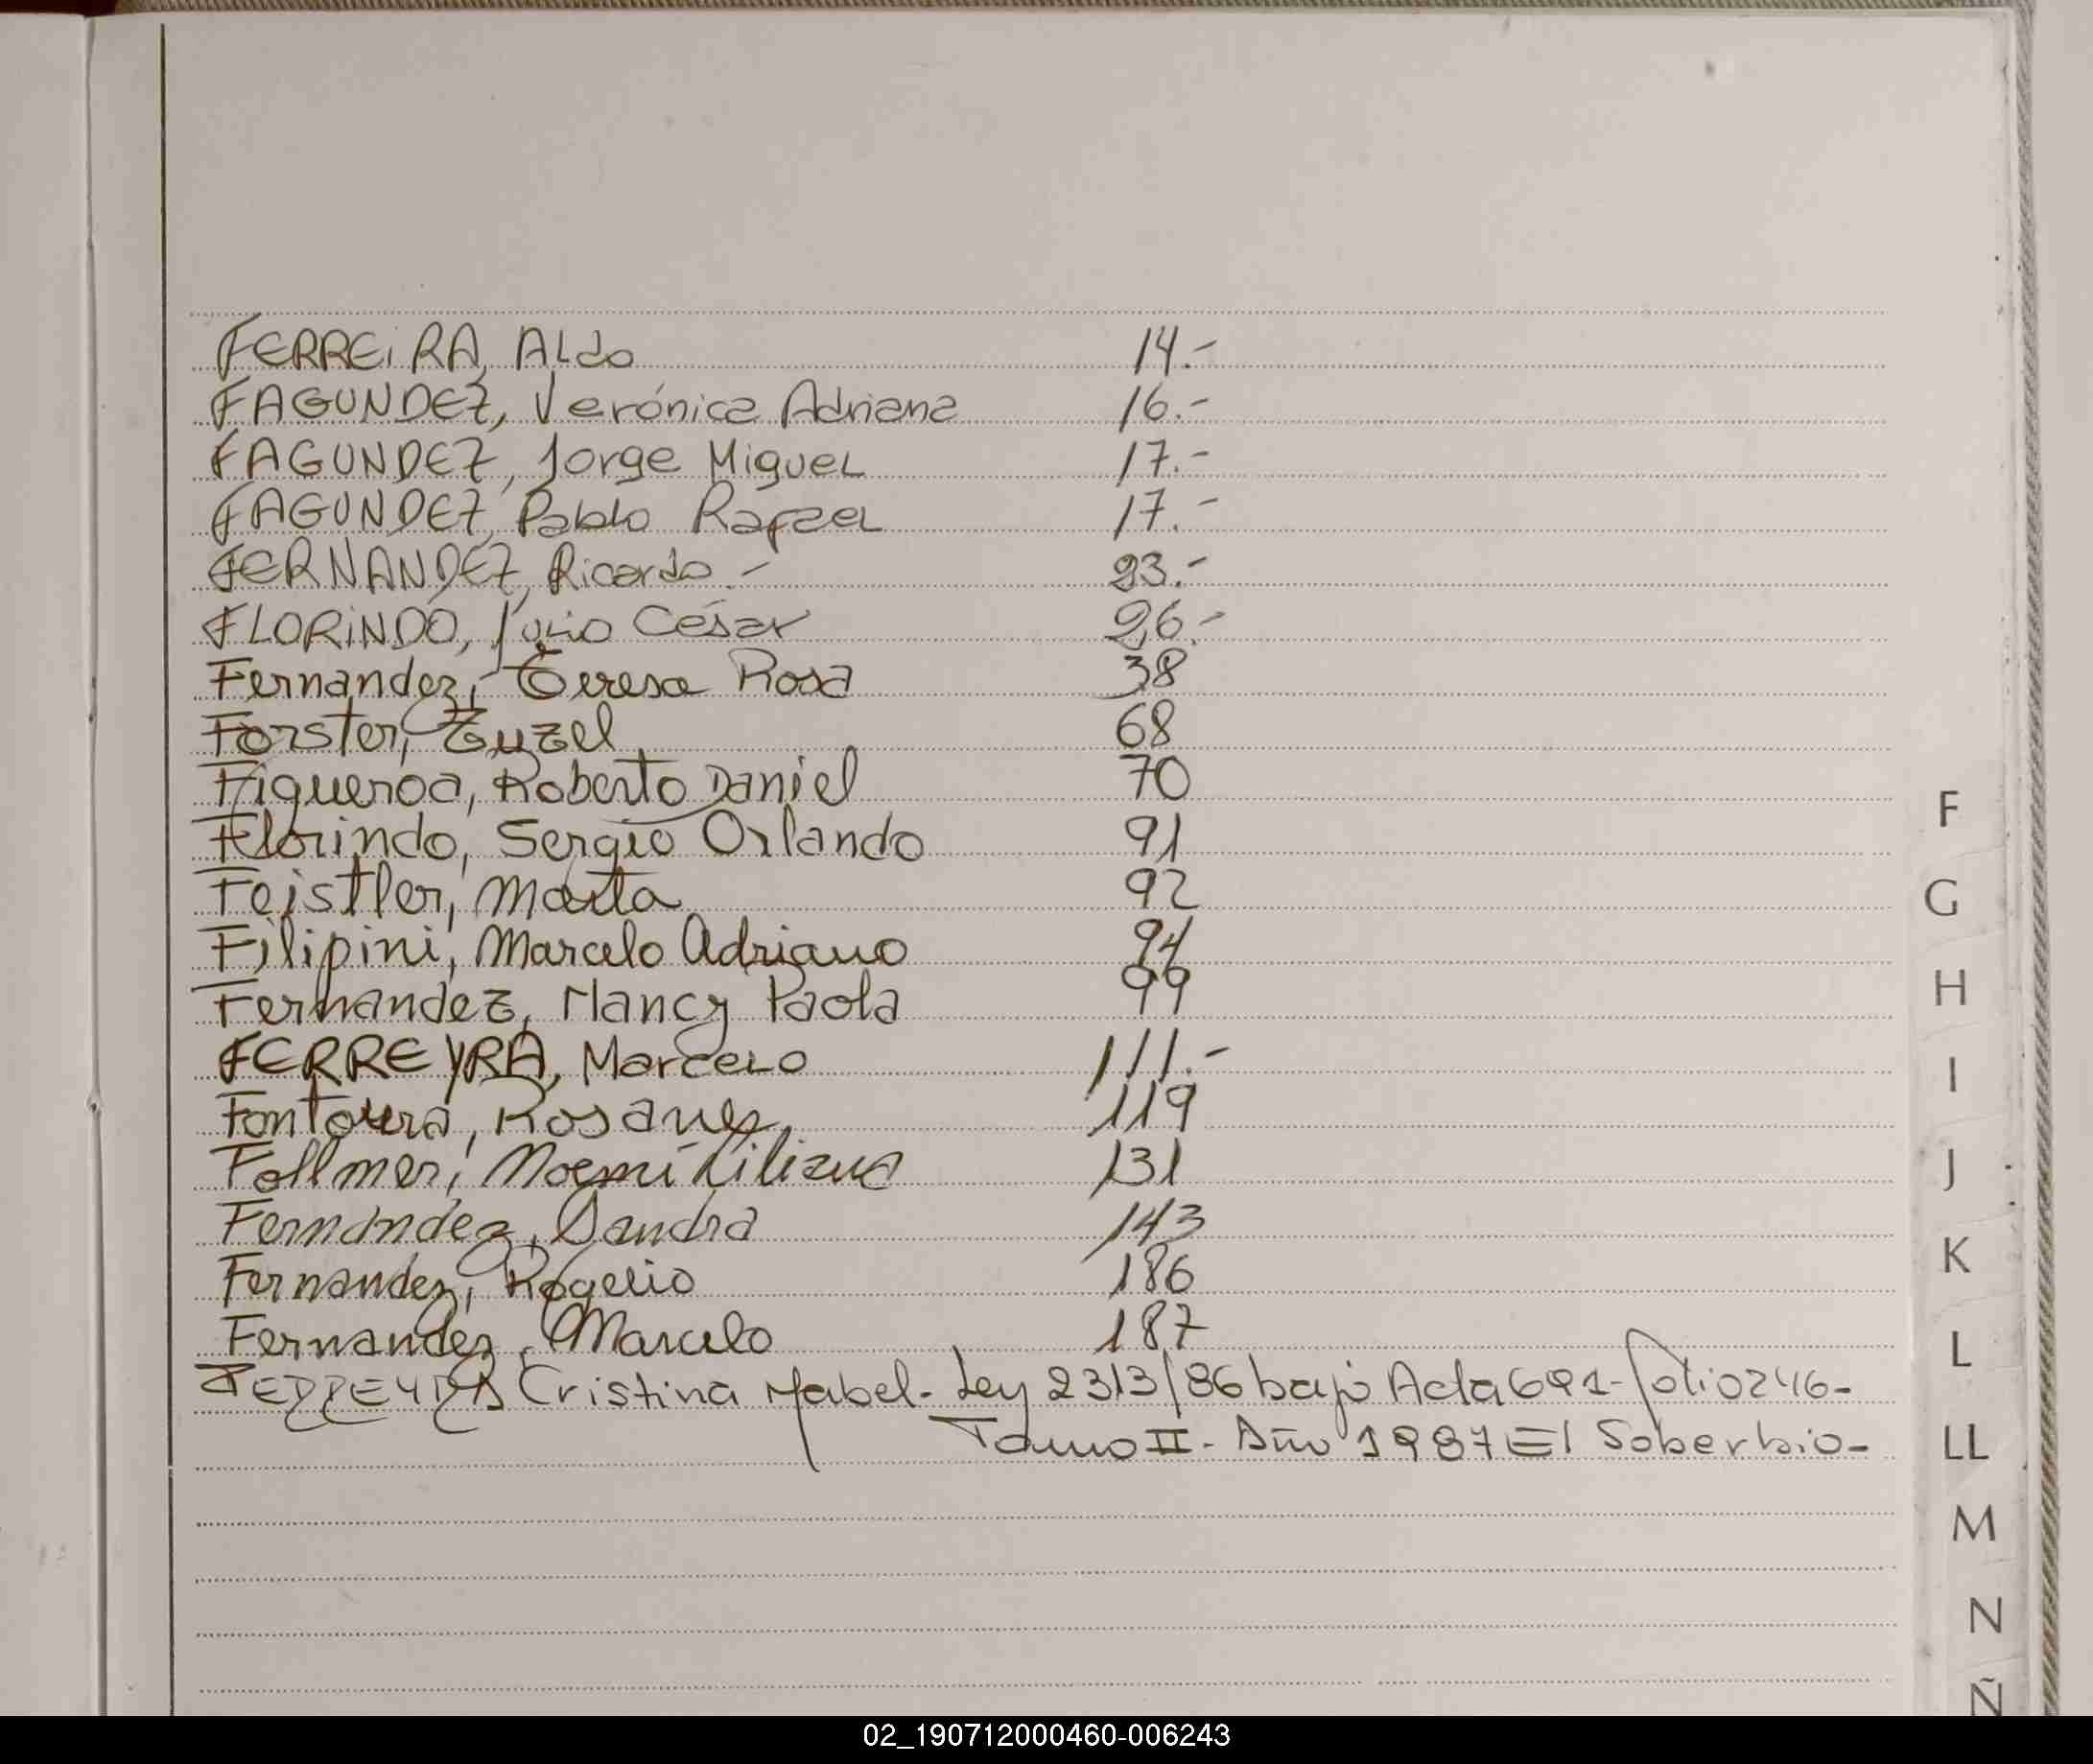 FERREIRA, Aldo 14.-
FAGUNDEZ, Verónica Adriana 16.-
FAGUNDEZ, Jorge Miguel 17.-
FAGUNDEZ, Pablo Rafael 17.-
FERNANDEZ, Ricardo.- 23.-
FLORINDO, Julio César 26.-
Fernandez, Teresa Rosa 38
Forster, Zuzel 68
Figueroa, Roberto Daniel 70
Florindo, Sergio Orlando 91
Feistler, Marta 92
Filipini, Marcelo Adriano 94
Fernandez, Nancy Paola 99
FERREYRA, Marcelo 111.-
Fontoura, Rosane 119
Follmer, Noemí Liliana 131
Fernández, Sandra 143
Fernandez, Rogelio 186
Fernandez, Marcelo 187
FERREYRA Cristina Mabel- Ley 2313/86 bajo Acta 691- folio 246-
Tomo II- Año 1987 El Soberbio-
F
G
H
I
J
K
L
LL
M
N
Ñ
02_190712000460-006243